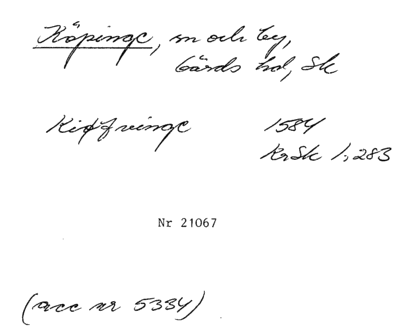 Köpinge, sn och by,
Gärds hd, Sk
Kiøfvinge 1584
KrSk 1:283
Nr 21067
(acc nr 5334)